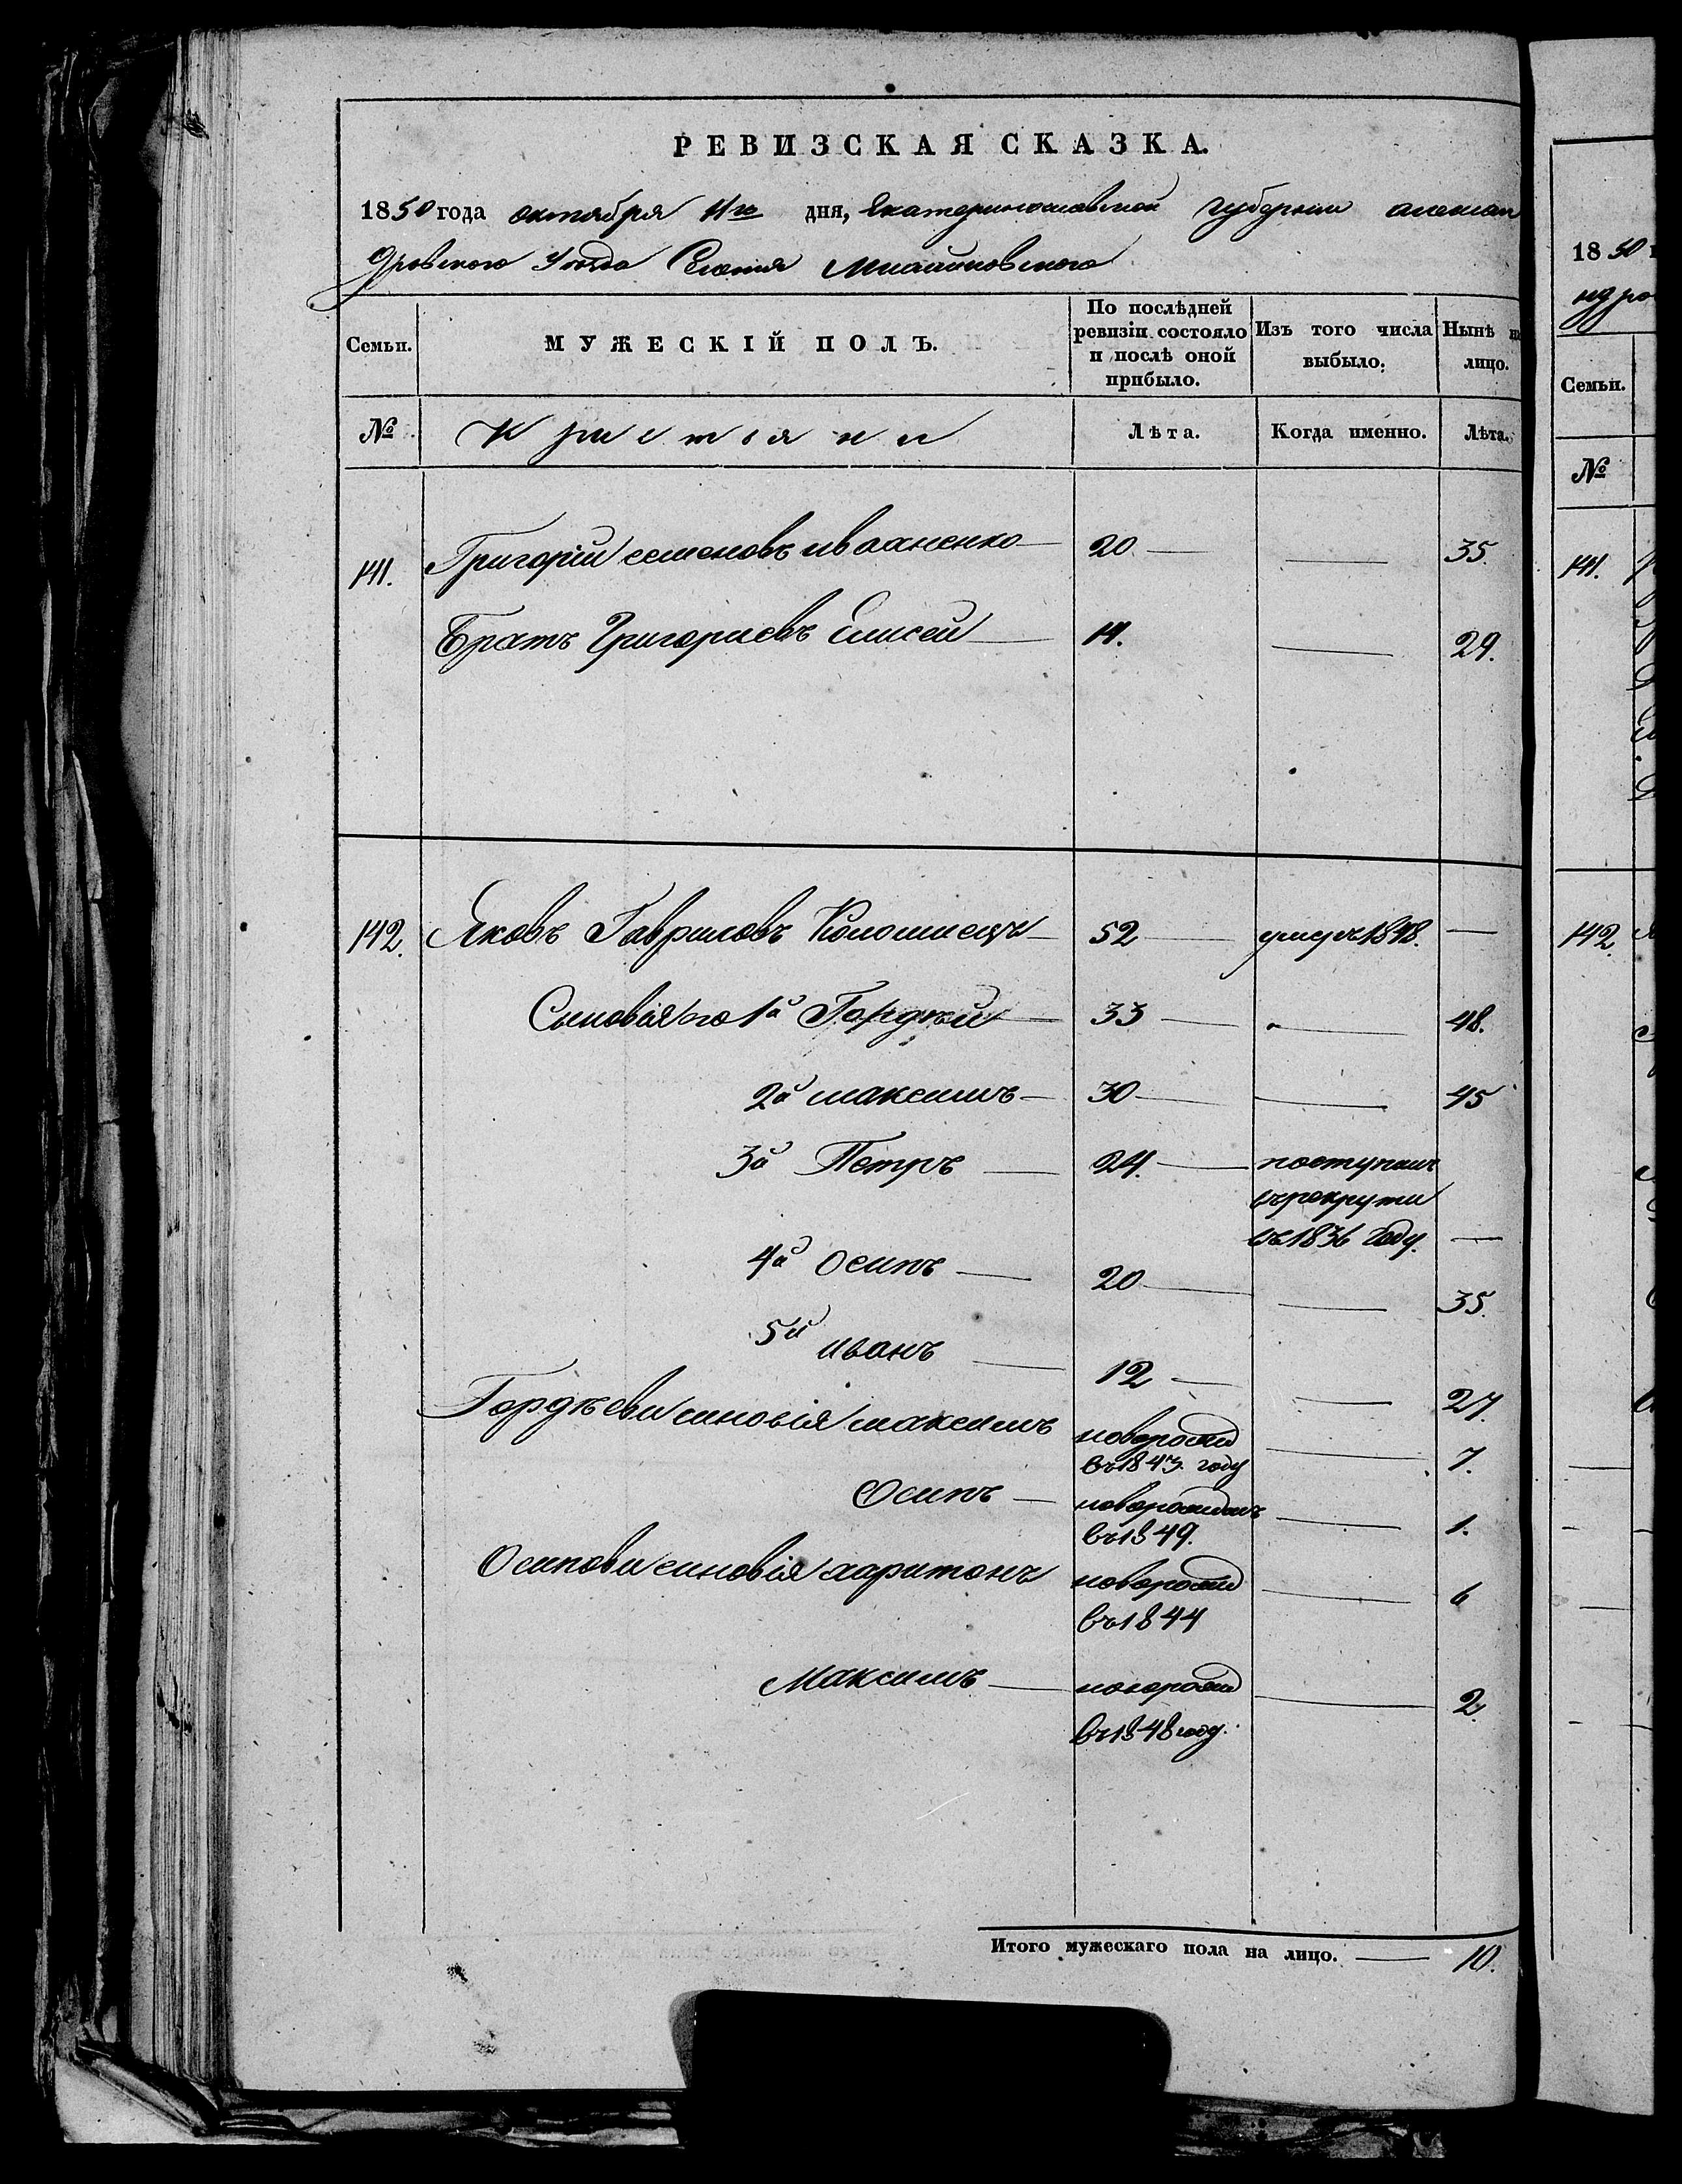 РЕВИЗСКАЯ СКАЗКА.
1850 года октября 11го дня, Екатеринославской губернии алексан
дровского Уезда Селения Михайловского
Семьи. МУЖЕСКІЙ ПОЛЪ. По послѣдней ревизіи состояло и послѣ оной прибыло. Изъ того числа выбыло. Нынѣ на лицо.
№ Кристіяни Лѣта. Когда именно. Лѣта.
141. Григорій семеновъ иваненко 20 35.
Братъ Григориевъ Елисей 14. 29.
142. Яковъ Гавриловъ Коломиецъ 52 умеръ 1848.
Сыновія его 1й Гордѣй 33 48.
2й максимъ 30 45
3й Петръ 24. поступилъ
въ рекрути
въ 1836 году.
4й осипъ 20 35.
5й иванъ 12 27.
Гордѣеви синовія максимъ новорожд 7.
въ 1843 году
Осипъ новорожденъ 1.
въ 1849.
Осипови синовія харитонъ новорожд 6
въ 1844
Максимъ новорожд 2.
въ 1848 году.
Итого мужескаго пола на лицо. 10.
1850
ндро
Семьи.
№
141.
142.